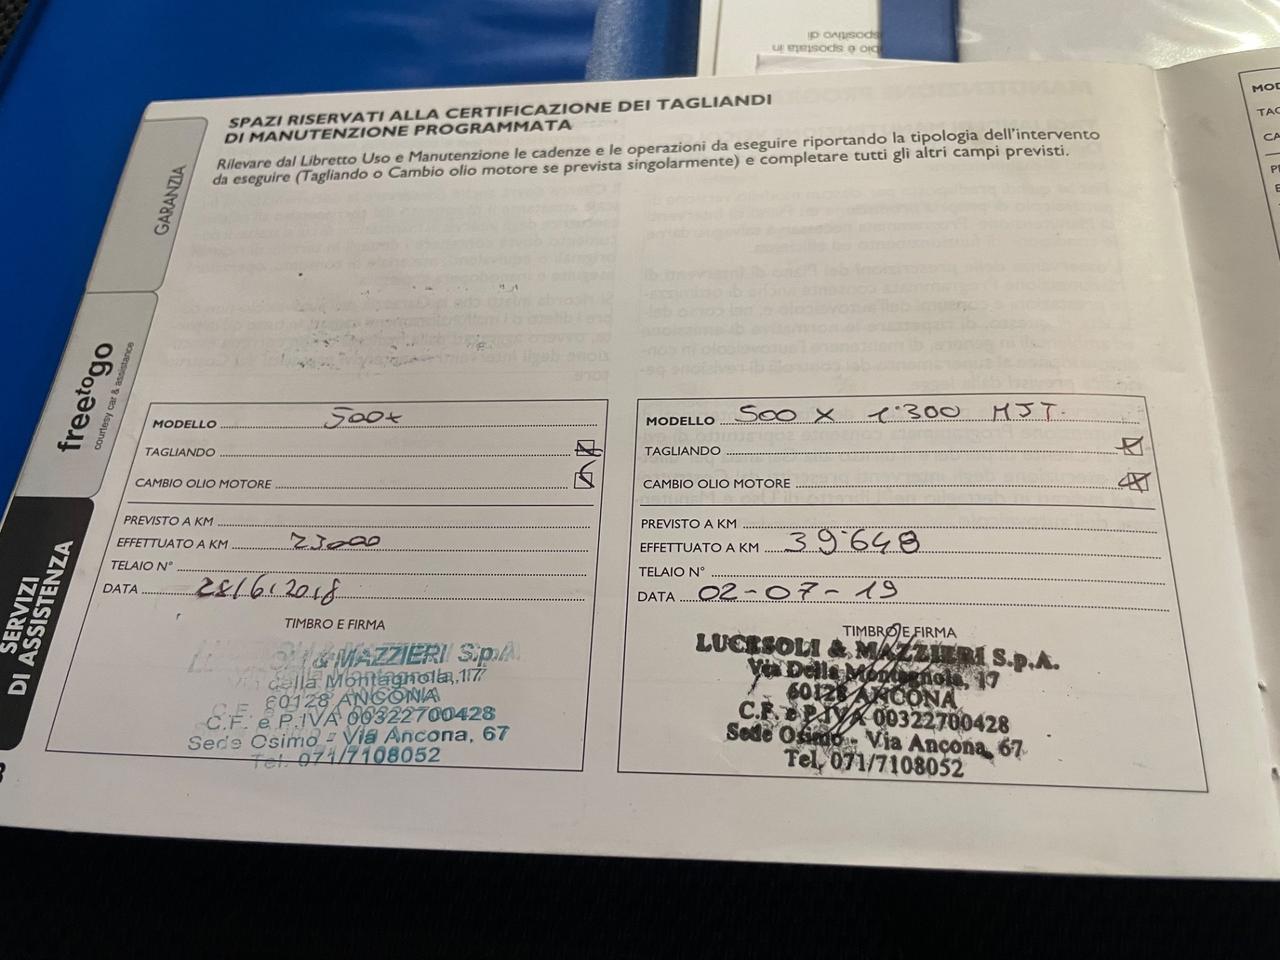 sportivo di
olo e spostata in
SPAZI RISERVATI ALLA CERTIFICAZIONE DEI TAGLIANDI
DI MANUTENZIONE PROGRAMMATA
Rilevare dal Libretto Uso e Manutenzione le cadenze e le operazioni da eseguire riportando la tipologia dell'intervento
da eseguire (Tagliando o Cambio olio motore se prevista singolarmente) e completare tutti gli altri campi previsti.
GARANZIA
freetogo
courtesy car & assistance
SERVIZI
DI ASSISTENZA
MODELLO 500x
TAGLIANDO
CAMBIO OLIO MOTORE
PREVISTO A KM
EFFETTUATO A KM 23000
TELAIO N°
DATA 28/6/2018
TIMBRO E FIRMA
& MAZZIERI S.p.A.
Via della Montagnola, 17
60128 ANCONA
C.F. e P.IVA 00322700428
Sede Osimo - Via Ancona, 67
Tel. 071/7108052
MODELLO 500 X 1.300 MJT.
TAGLIANDO
CAMBIO OLIO MOTORE
PREVISTO A KM
EFFETTUATO A KM 39.648
TELAIO N°
DATA 02-07-19
TIMBRO E FIRMA
LUCESOLI & MAZZIERI S.p.A.
Via Della Montagnola, 17
60128 ANCONA
C.F. e P.IVA 00322700428
Sede Osimo - Via Ancona, 67
Tel. 071/7108052